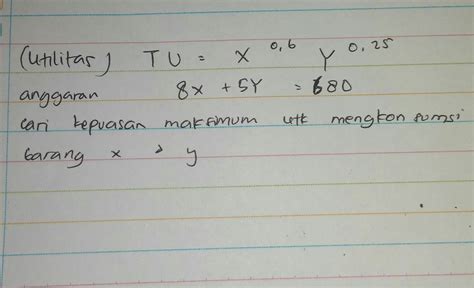 (Utilitas) TU = X^0,6 Y^0,25
anggaran 8x + 5Y = 680
cari kepuasan maksimum utk mengkonsumsi
barang x & y